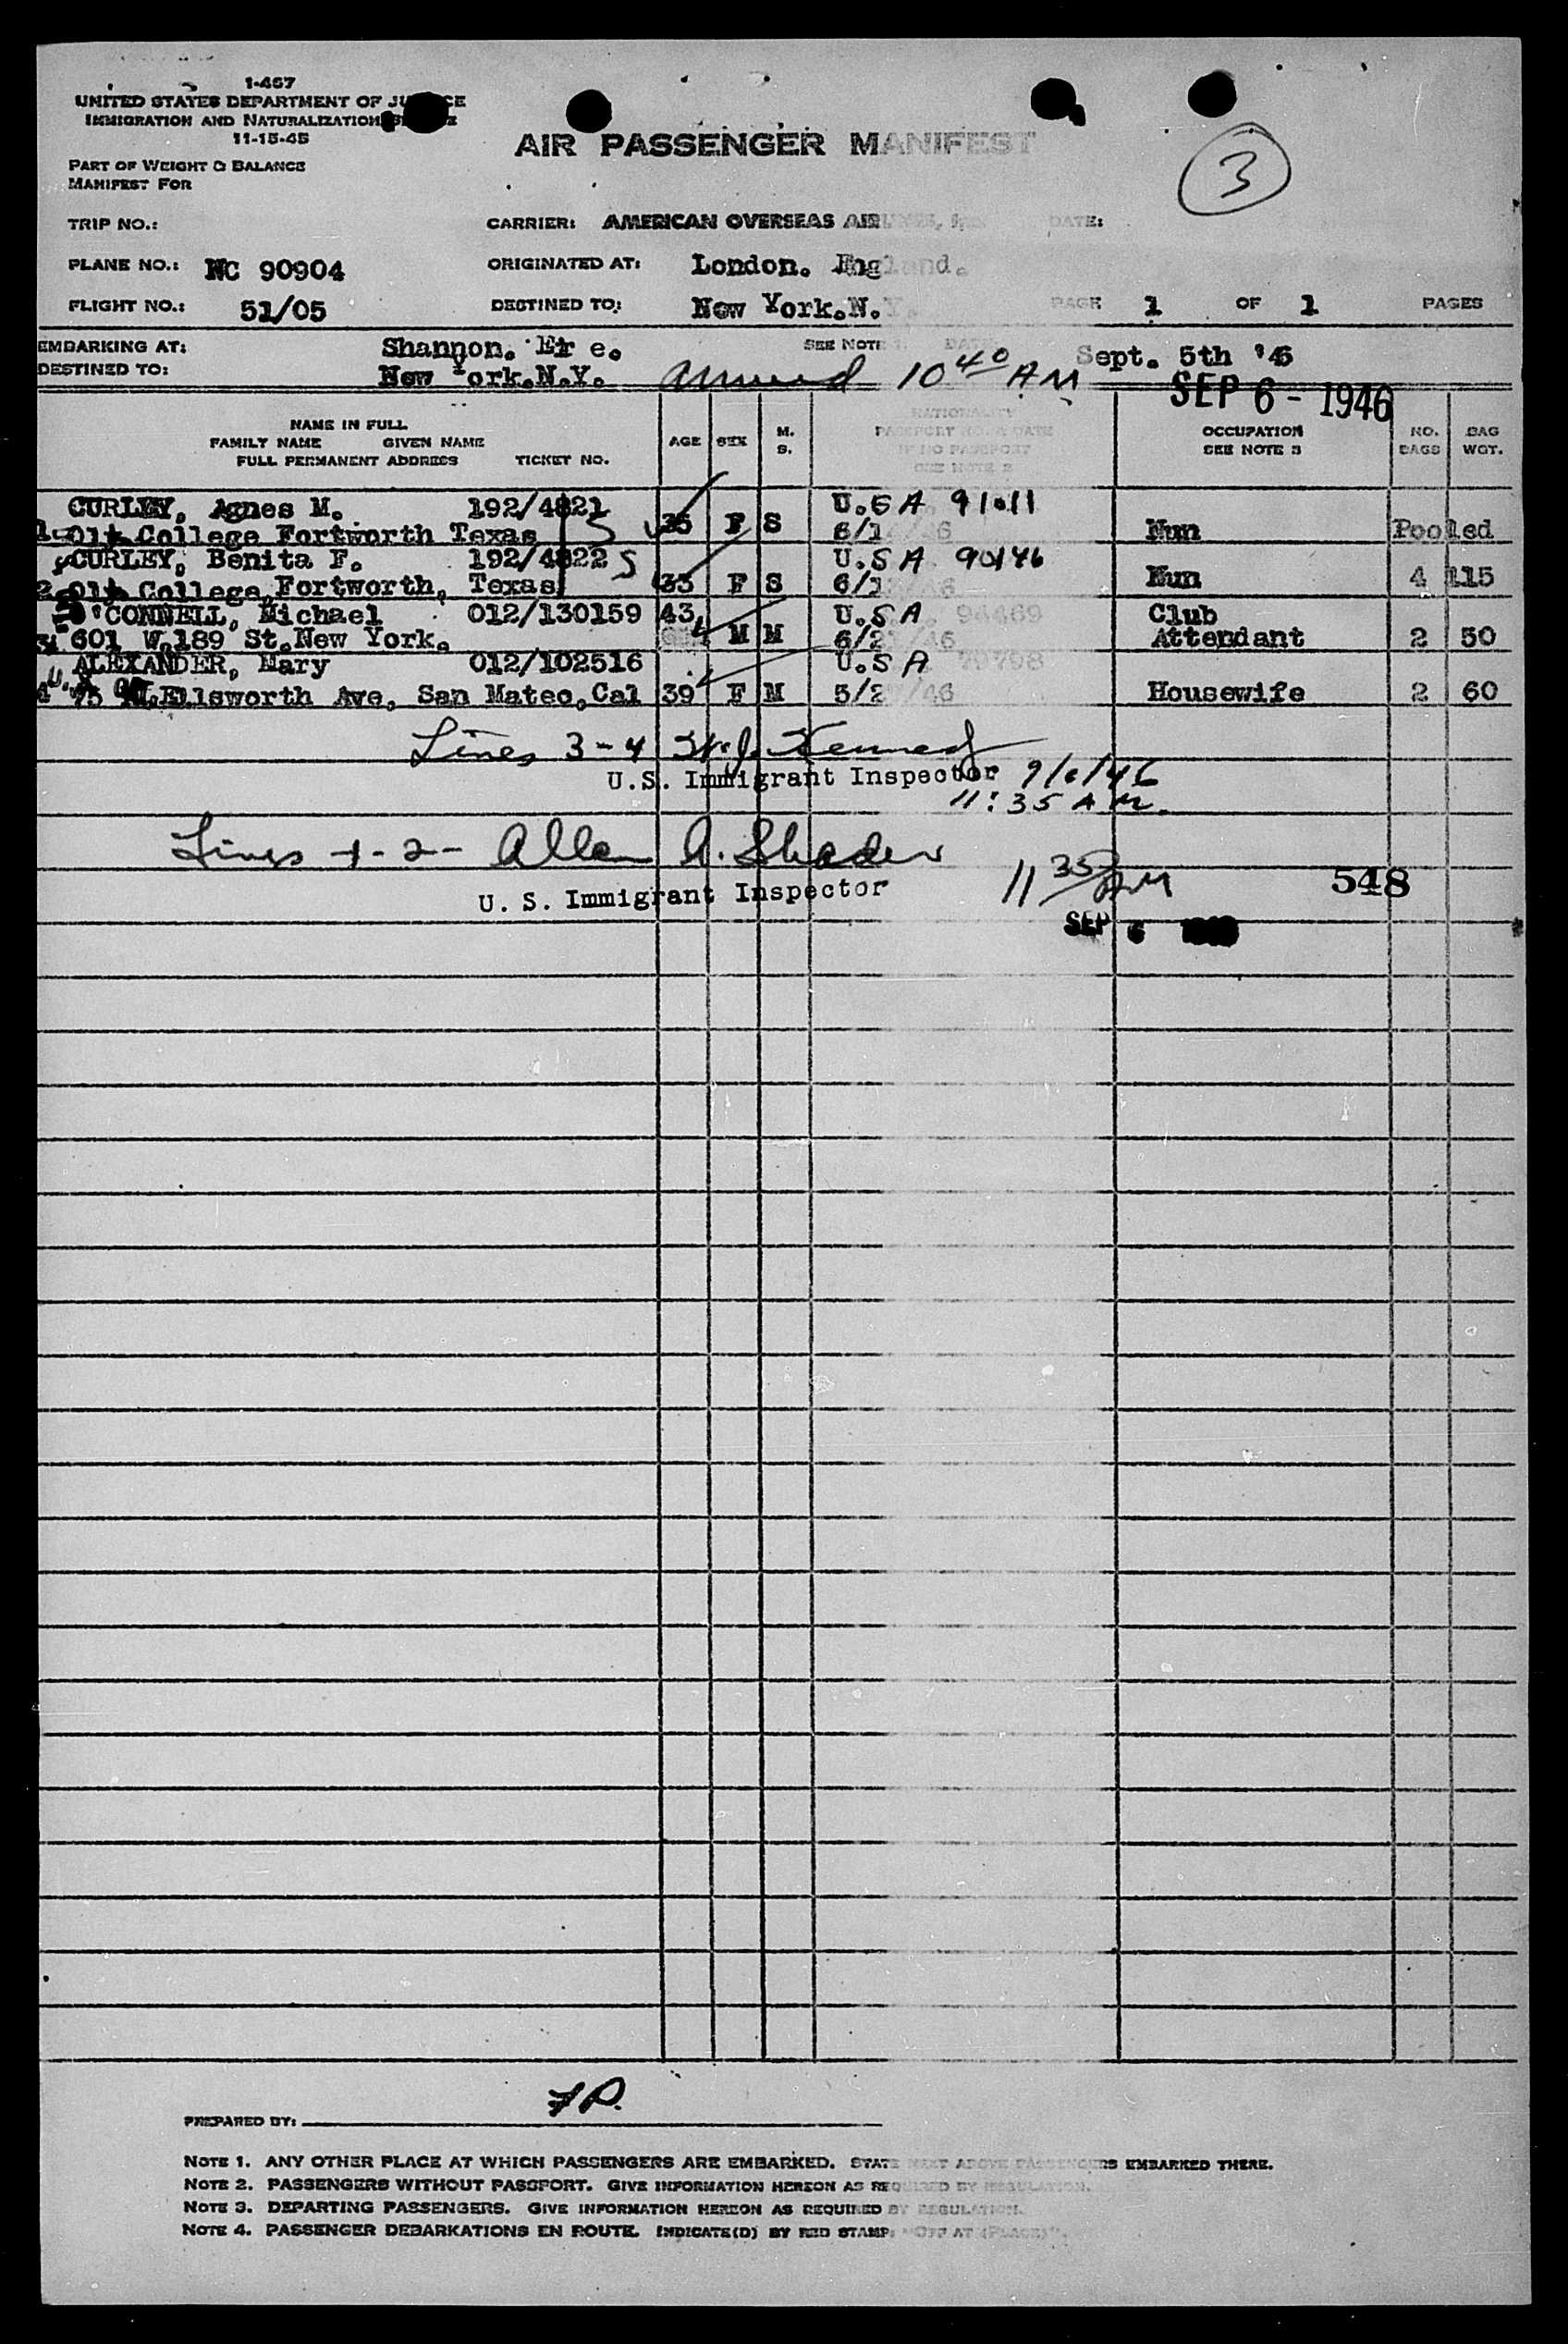 1-467
UNITED STATES DEPARTMENT OF
IMMIGRATION AND NATURALIZATION
11-15-45
AIR PASSENGER MANIFEST
3
PART OF WEIGHT & BALANCE
MANIFEST FOR
TRIP NO.: CARRIER: AMERICAN OVERSEAS DATE:
PLANE NO.: NC 90904 ORIGINATED AT: London. England.
FLIGHT NO.: 51/05 DESTINED TO: New York.N.Y. PAGE 1 OF 1 PAGES
EMBARKING AT: Shannon. Eir e. SEE NOTE 1. DATE: Sept. 5th '46
DESTINED TO: New York.N.Y. Arrived 10 40 AM
SEP 6 - 1946
NAME IN FULL
FAMILY NAME GIVEN NAME
FULL PERMANENT ADDRESS TICKET NO.
AGE SEX M. S.
NATIONALITY
PASSPORT NO. & DATE
IF NO PASSPORT
SEE NOTE 2
OCCUPATION
SEE NOTE 3
NO. BAGS
BAG WGT.
CURLEY, Agnes M. 192/4821 U.S A
College Fortworth Texas 35 F S Nun Pooled
CURLEY, Benita F. 192/4822 S U.S A 90146
2 College,Fortworth, Texas 33 F S Nun 4 115
O'CONNELL, Michael 012/130159 43 U.S A 94469 Club
3 601 W.189 St.New York. M M Attendant 2 50
ALEXANDER, Mary 012/102516 U.S A
4 Ellsworth Ave, San Mateo,Cal 39 F M 5/2 /46 Housewife 2 60
Lines 3-4 Kennedy
U.S. Immigrant Inspector 9/6/46
11:35 AM.
Lines 1-2- Allen A. Shader
U. S. Immigrant Inspector 11 35 AM 548
SEP 6
PREPARED BY: FP.
NOTE 1. ANY OTHER PLACE AT WHICH PASSENGERS ARE EMBARKED. STATE NEXT ABOVE PASSENGERS EMBARKED THERE.
NOTE 2. PASSENGERS WITHOUT PASSPORT. GIVE INFORMATION HEREON AS REQUIRED BY REGULATION.
NOTE 3. DEPARTING PASSENGERS. GIVE INFORMATION HEREON AS REQUIRED BY REGULATION.
NOTE 4. PASSENGER DEBARKATIONS EN ROUTE. INDICATE(D) BY RED STAMP: "OFF AT (PLACE)".